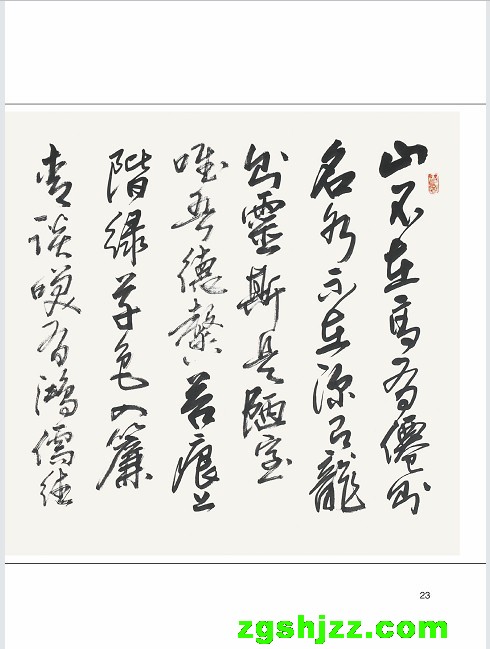 山不在高有僊则
名水不在深有龍
则靈斯是陋室
唯吾德馨苔痕上
階緑草色入簾
青談咲有鴻儒往
23
zgshjzz.com